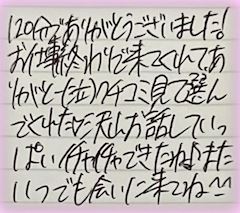 120分でありがとうございました!
お仕事終わりで来てくれてあ
りがと〜(泣)クチコミ見て選ん
でくれた♡沢山お話していっ
ぱいイチャイチャできたね♪また
いつでも会いに来てね^^